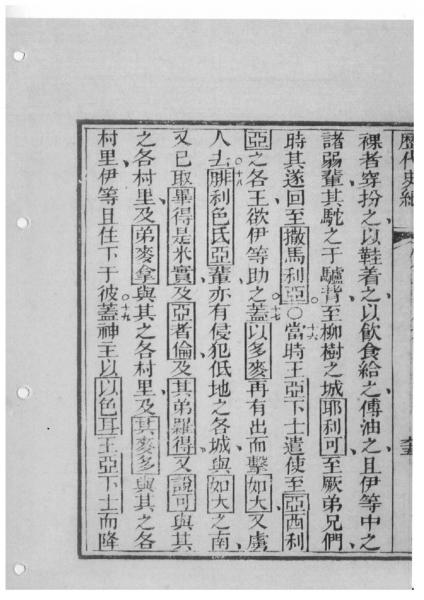 歷代史紀
裸者穿扮之以鞋着之以飲食給之傅油之且伊等中之
諸弱輩其駝之于驢背至柳樹之城耶利可至厥弟兄們
時其遂回至撒馬利亞○十六當時王亞下士遣使至亞西利
亞之各王欲伊等助之十七蓋以多麥再有出而擊如大又虜
人去○十八腓利色氏亞輩亦有侵犯低地之各城與如大之南
又已取畢得是米實及亞者倫及其弟羅得又說可與其
之各村里及弟麥拿與其之各村里及其麥多與其之各
村里伊等且住下于彼○十九蓋神主以以色耳王亞下士而降